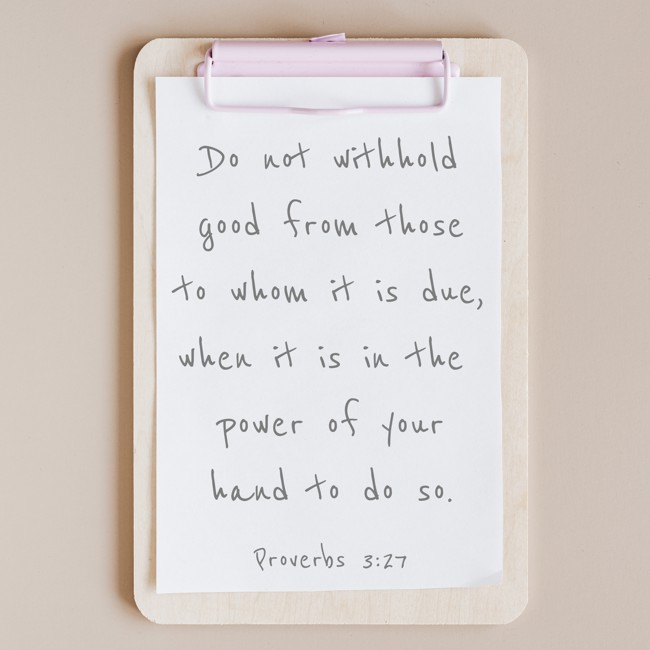 Do not withhold
good from those
to whom it is due,
when it is in the
power of your
hand to do so.
Proverbs 3:27